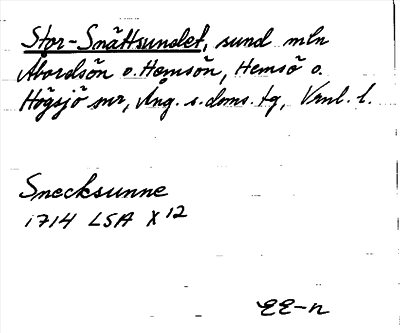 Stor-Snättsundet, sund mln
Åbordsön o. Hemsön, Hemsö o.
Högsjö snr, Ång. s. doms. tg, Vrnl. l.
Snecksunne
1714 LSA X 12
EE-n